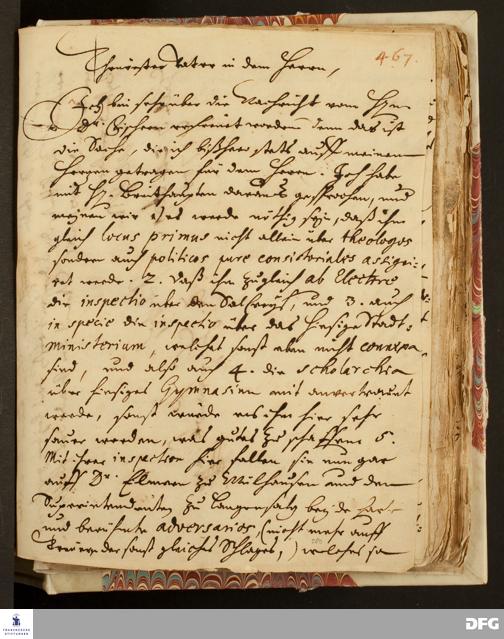 467.
Theurester Vater in dem Herrn,
Ich bin sehr über die Nachricht vom Hrn
Dr. Fischern erfreuet worden denn das ist
die Sache, die ich bißher stets auff meinem
Herzen getragen für dem Herrn. Ich habe
mit H. Breithaupten daraus gesprochen, und
meinen wir 1) es werde nöthig seyn, daß ihm
gleich locus primus nicht allein über theologos
sondern auch politicos pure consistoriales assigni-
ret werde. 2. Daß ihm zugleich ab Electore
die inspectio über den Salkreyß, und 3. auch
in specie die inspectio über das hiesige Stadt-
Ministerium, welches sonst eben nicht connexa
sind, und alß auch 4. die Scholarchia
über hiesiges Gymnasium mit anvertrauet
werde, sonst würde es ihm hier sehr
sauer werden, was gutes zu schaffen. 5.
Mit ihrer inspection hier fallen sie nun gar
auff Dr. Ellmern zu Mülhausen und dem
Superintendenten zu Langensaltz beyde harte
und berühmte adversarios (nicht mehr auff
der sonst gleiches Schlages,) welches so
FRANCKESCHE
STIFTUNGEN
DFG